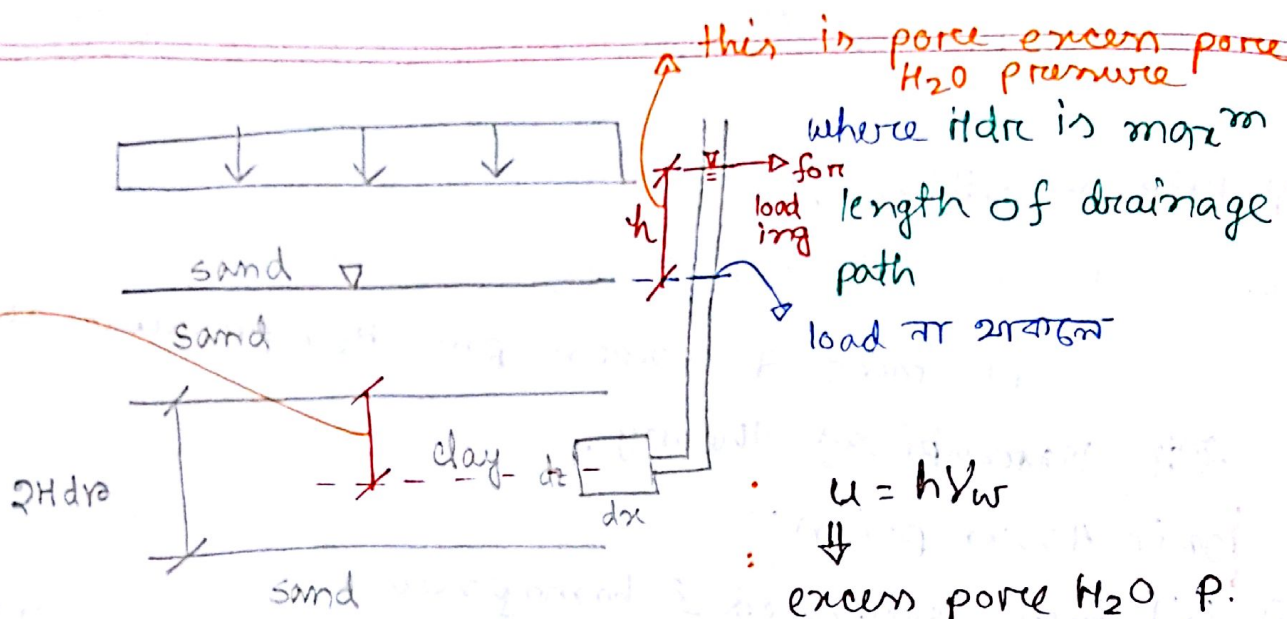 this is pore excess pore
H₂O pressure
where Hdr is maxᵐ
length of drainage
path
for
load
ing
h
load না থাকলে
sand
sand
clay
dz
dx
2Hdr
sand
u = hγw
⇓
excess pore H₂O P.